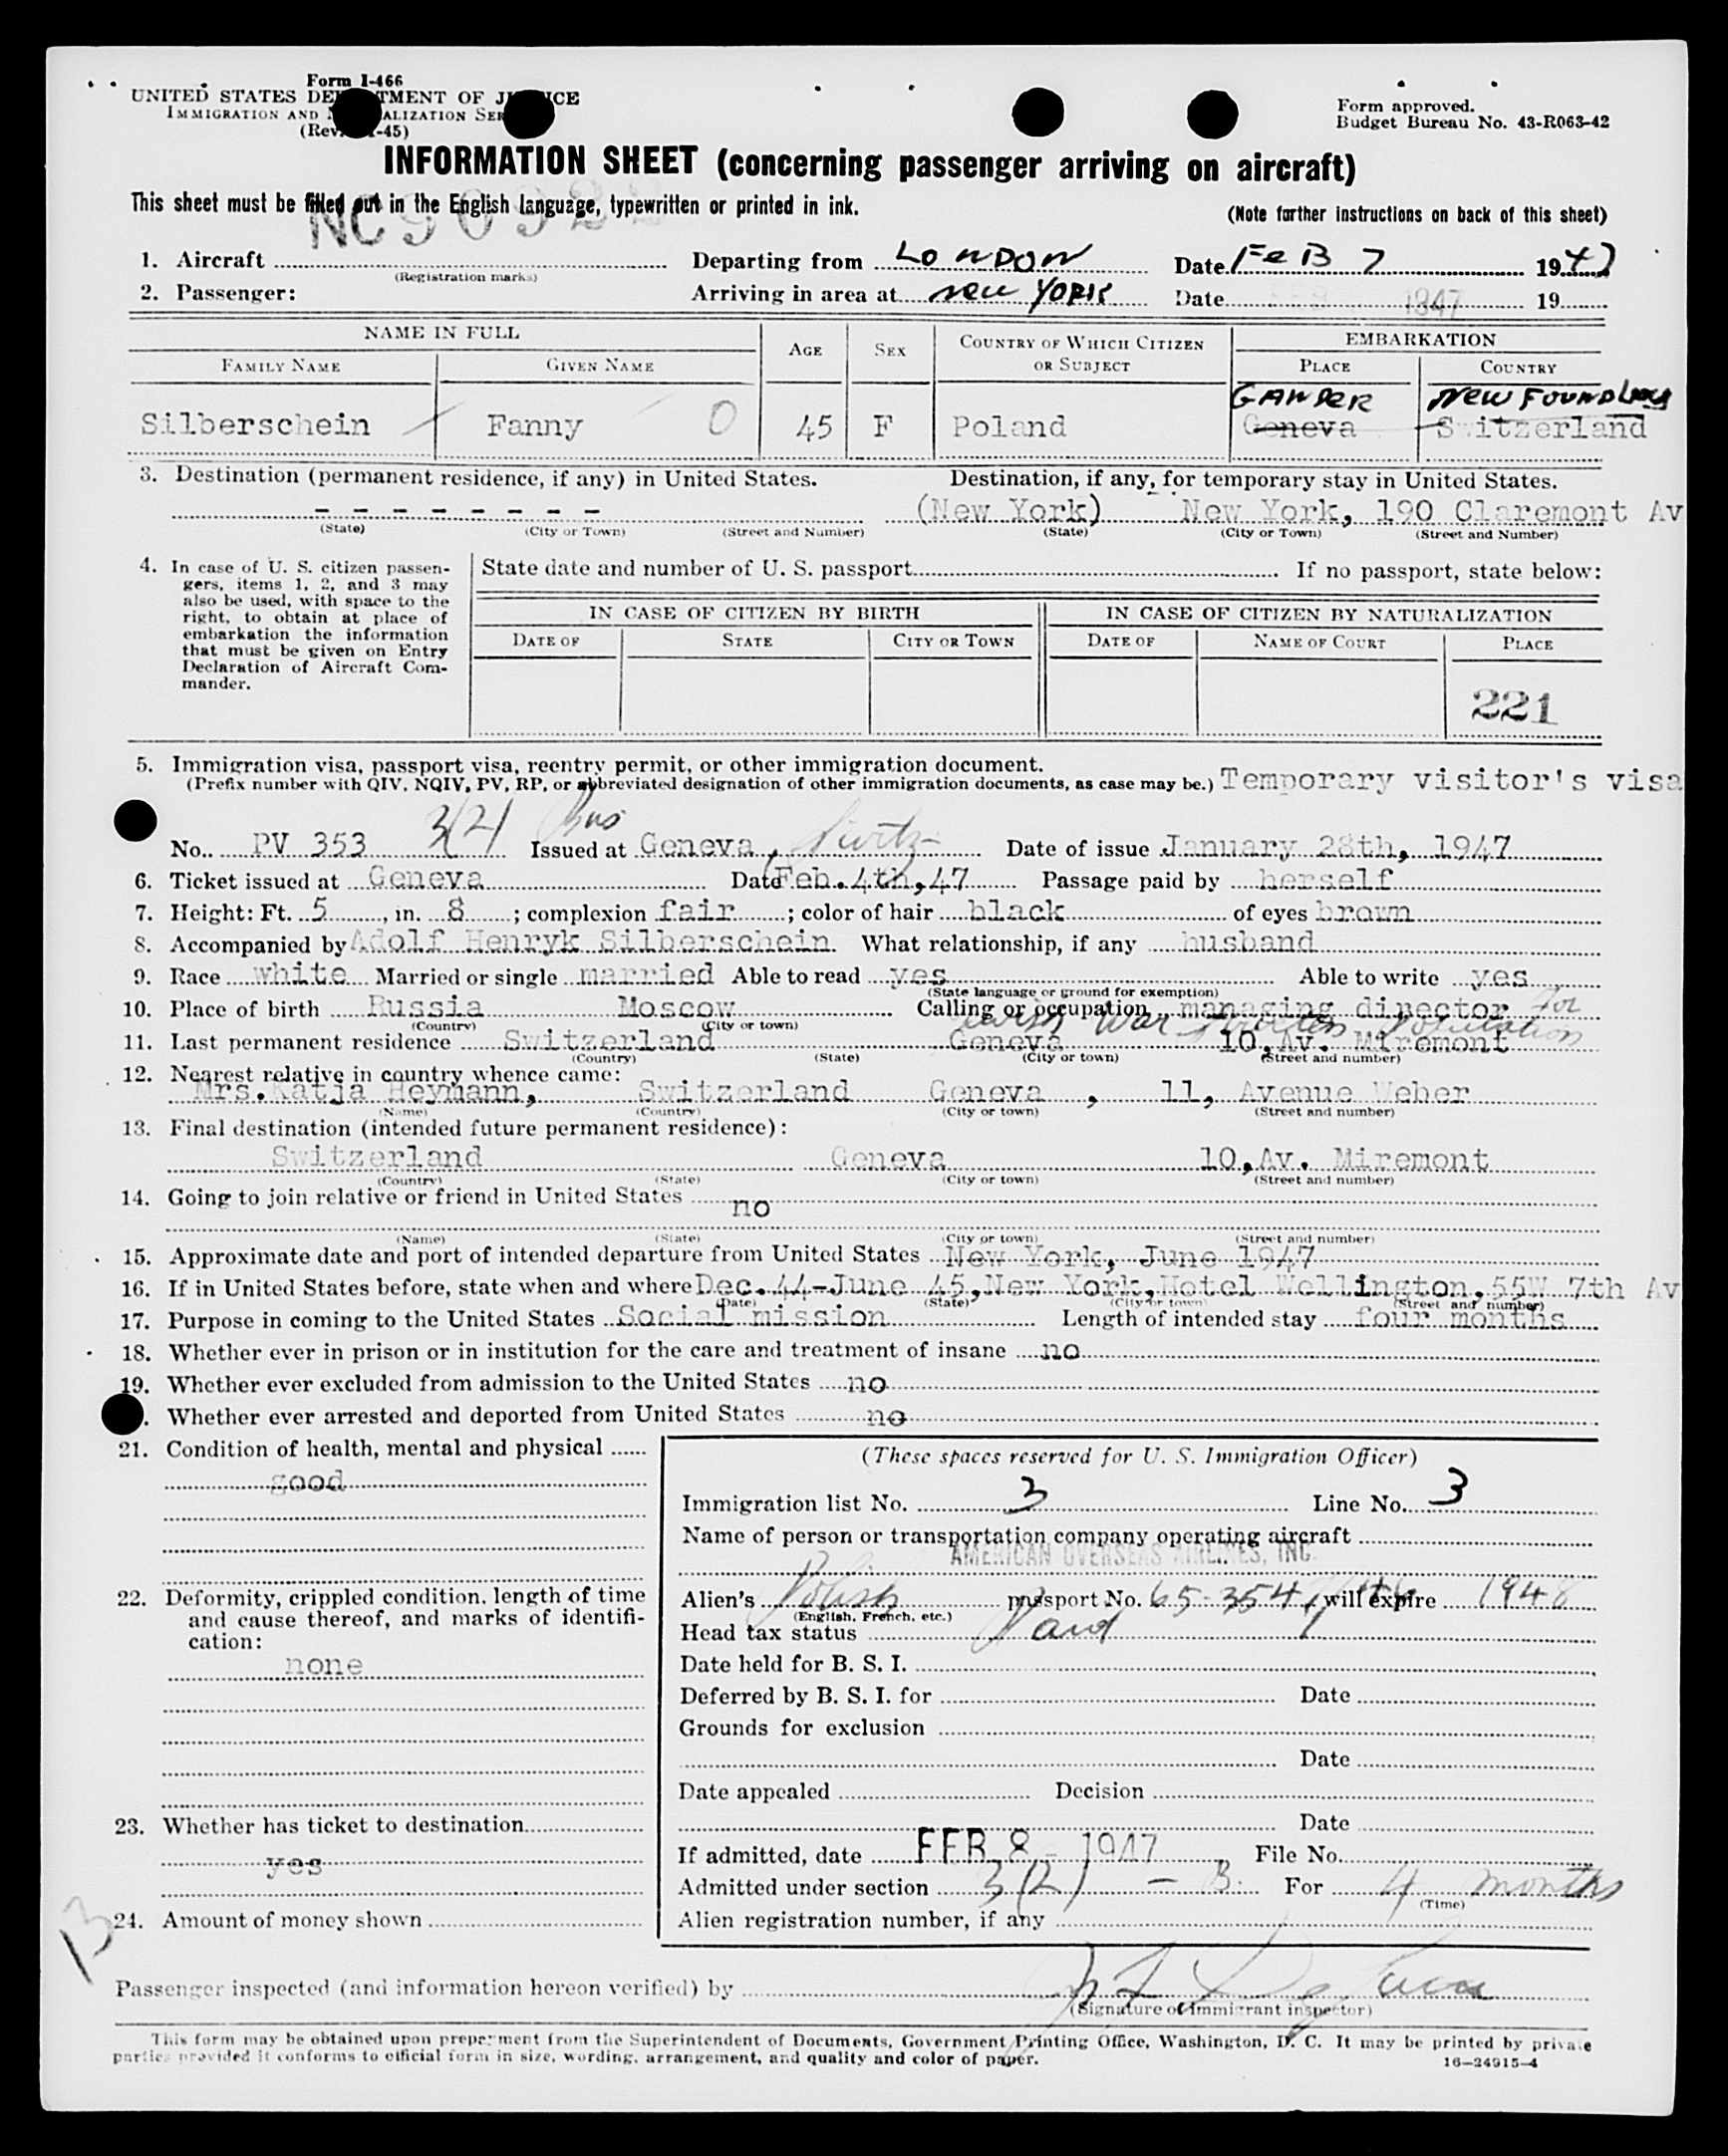 Form I-466
UNITED STATES DEPARTMENT OF JUSTICE
IMMIGRATION AND NATURALIZATION SERVICE
(Rev. -45)
Form approved.
Budget Bureau No. 43-R063-42
INFORMATION SHEET (concerning passenger arriving on aircraft)
This sheet must be filled out in the English language, typewritten or printed in ink.
(Note further instructions on back of this sheet)
NC 9092
1. Aircraft (Registration marks) Departing from LONDON Date FEB 7 1947
2. Passenger: Arriving in area at NEW YORK Date 1947 19
NAME IN FULL AGE SEX COUNTRY OF WHICH CITIZEN OR SUBJECT EMBARKATION
FAMILY NAME GIVEN NAME PLACE COUNTRY
GANDER NEWFOUNDLAND
Silberschein Fanny 0 45 F Poland Geneva Switzerland
3. Destination (permanent residence, if any) in United States. Destination, if any, for temporary stay in United States.
- - - - - - - - (New York) New York, 190 Claremont Av
(State) (City or Town) (Street and Number) (State) (City or Town) (Street and Number)
4. In case of U. S. citizen passengers, items 1, 2, and 3 may also be used, with space to the right, to obtain at place of embarkation the information that must be given on Entry Declaration of Aircraft Commander.
State date and number of U. S. passport If no passport, state below:
IN CASE OF CITIZEN BY BIRTH IN CASE OF CITIZEN BY NATURALIZATION
DATE OF STATE CITY OR TOWN DATE OF NAME OF COURT PLACE
221
5. Immigration visa, passport visa, reentry permit, or other immigration document.
(Prefix number with QIV, NQIV, PV, RP, or abbreviated designation of other immigration documents, as case may be.) Temporary visitor's visa
No. PV 353 3(2) Bus Issued at Geneva, Switz Date of issue January 28th, 1947
6. Ticket issued at Geneva Date Feb. 4th, 47 Passage paid by herself
7. Height: Ft. 5, in. 8; complexion fair; color of hair black of eyes brown
8. Accompanied by Adolf Henryk Silberschein What relationship, if any husband
9. Race white Married or single married Able to read yes Able to write yes
(State language or ground for exemption)
10. Place of birth Russia Moscow Calling or occupation managing director for
(Country) (City or town) Jewish War
11. Last permanent residence Switzerland Geneva 10, Av. Miremont
(Country) (State) (City or town) (Street and number)
12. Nearest relative in country whence came:
Mrs. Katja Heymann, Switzerland Geneva, 11, Avenue Weber
(Name) (Country) (City or town) (Street and number)
13. Final destination (intended future permanent residence):
Switzerland Geneva 10, Av. Miremont
(Country) (State) (City or town) (Street and number)
14. Going to join relative or friend in United States no
(Name) (State) (City or town) (Street and number)
15. Approximate date and port of intended departure from United States New York, June 1947
16. If in United States before, state when and where Dec. 44-June 45, New York, Hotel Wellington, 55W 7th Av
(Date) (State) (City or town) (Street and number)
17. Purpose in coming to the United States Social mission Length of intended stay four months
18. Whether ever in prison or in institution for the care and treatment of insane no
19. Whether ever excluded from admission to the United States no
. Whether ever arrested and deported from United States no
21. Condition of health, mental and physical
good
22. Deformity, crippled condition, length of time and cause thereof, and marks of identification:
none
23. Whether has ticket to destination
yes
24. Amount of money shown
13
(These spaces reserved for U. S. Immigration Officer)
Immigration list No. 3 Line No. 3
Name of person or transportation company operating aircraft
AMERICAN OVERSEAS AIRLINES, INC.
Alien's Polish passport No. 65-354 will expire 1948
(English, French, etc.)
Head tax status Paid
Date held for B. S. I.
Deferred by B. S. I. for Date
Grounds for exclusion
Date
Date appealed Decision
Date
If admitted, date FEB 8 - 1947 File No.
Admitted under section 3(2) - B. For 4 months
(Time)
Alien registration number, if any
Passenger inspected (and information hereon verified) by
(Signature of Immigrant inspector)
This form may be obtained upon prepayment from the Superintendent of Documents, Government Printing Office, Washington, D. C. It may be printed by private
parties provided it conforms to official form in size, wording, arrangement, and quality and color of paper.
16-24915-4